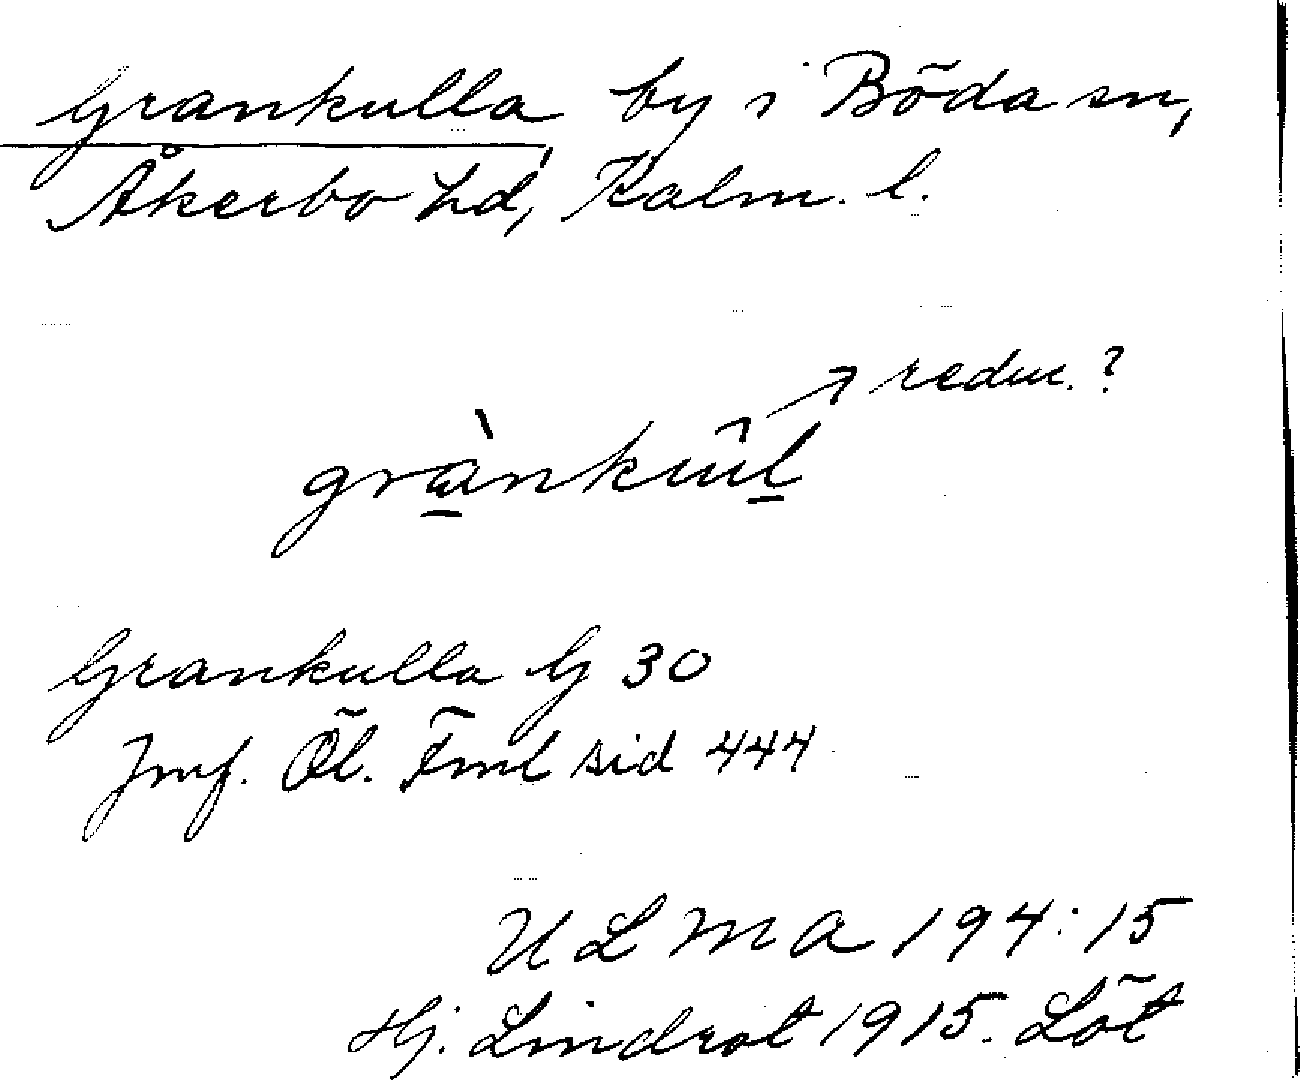 Grankulla by i Böda sn,
Åkerbo hd, Kalm. l.
reduc.?
grànkùl
Grankulla G 30
Jmf. Öl. Fml sid 444
ULMA 194:15
Hj. Lindrot 1915. Löt